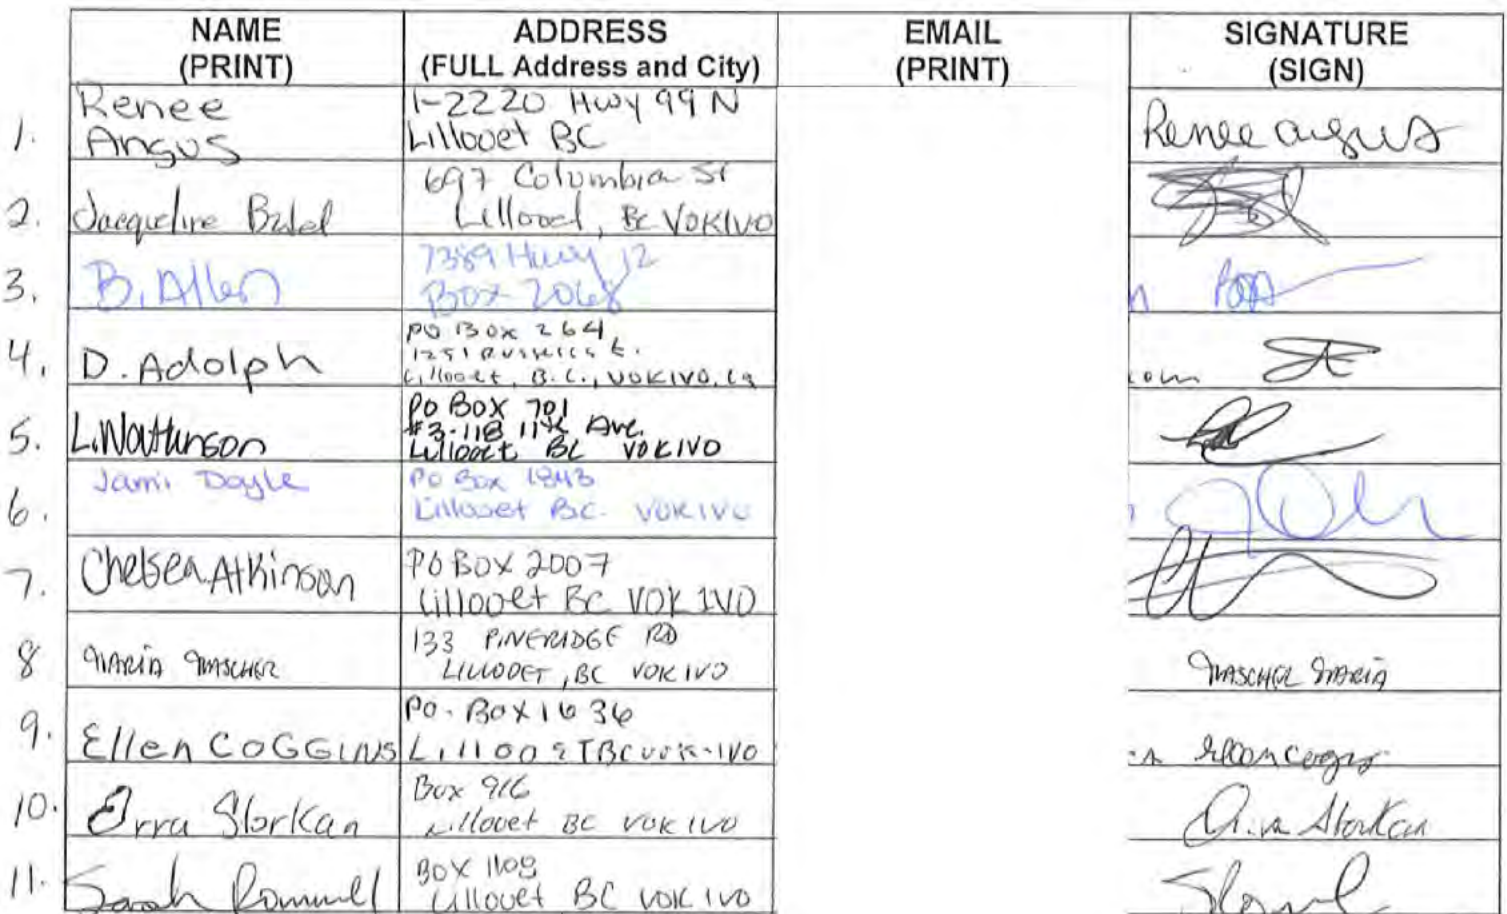 NAME (PRINT) ADDRESS (FULL Address and City) EMAIL (PRINT) SIGNATURE (SIGN)
1. Renee Angus 1-2220 Hwy 99 N Lillooet BC Renee angus
2. Jacqueline 697 Columbia St Lillooet, BC V0K1V0
3. B. Allen 7389 Hwy 12 Box 2068
4. D. Adolph PO Box 264 1251 Lillooet, B.C., V0K1V0, Ca com
5. L. Watkinson PO BOX 701 #3-118 11th Ave. Lillooet BC V0K1V0
6. Jami Doyle PO Box 1843 Lillooet BC. V0K1V0
7. Chelsea Atkinson PO BOX 2007 Lillooet BC V0K 1V0
8 MARIA MASCHER 133 PINERIDGE RD LILLOOET, BC V0K1V0 MASCHER MARIA
9. Ellen COGGINS PO. BOX 1636 LillooeT BC V0K-1V0
10. Storkan Box 916 Lillooet BC V0K 1V0 Storkan
11. Sarah Box 1108 Lillooet BC V0K 1V0